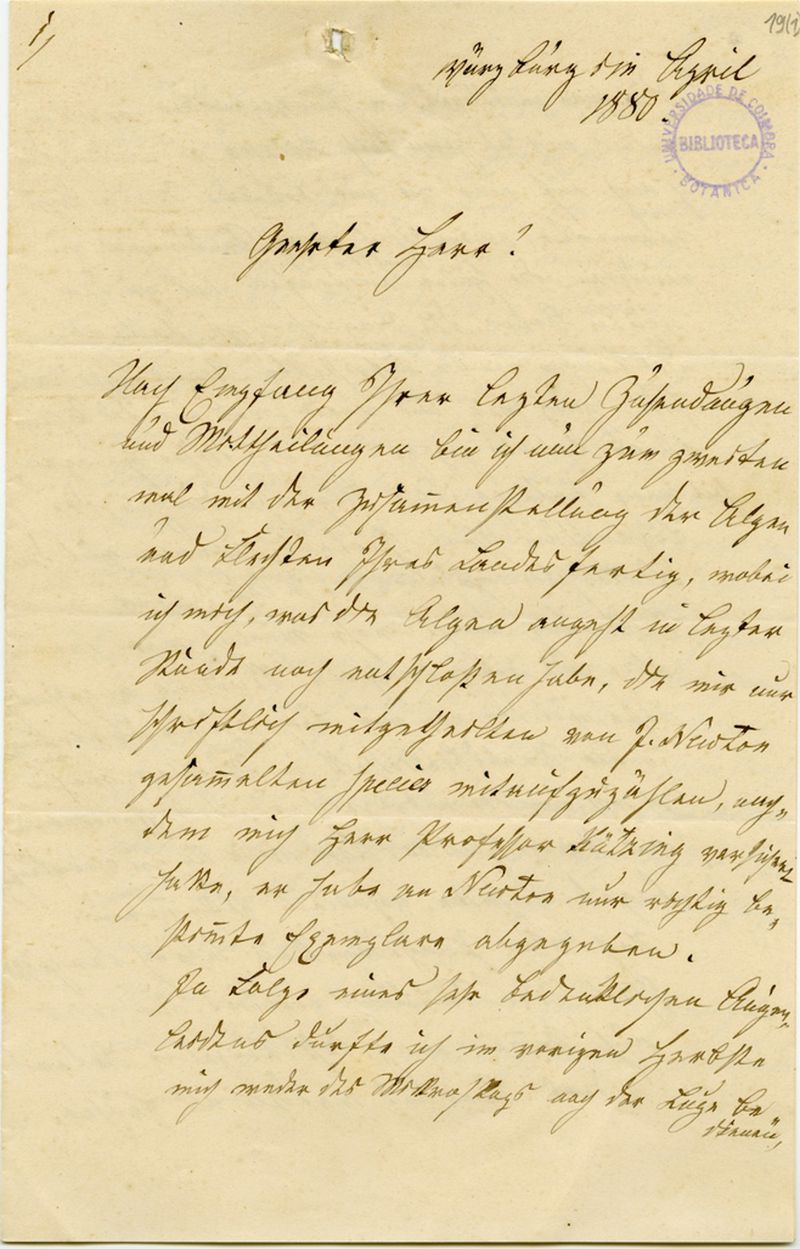 1/
19(1)
Würzburg im April
1880.
UNIVERSIDADE DE COIMBRA
BIBLIOTECA
BOTANICA
Geehrter Herr!
Nach Empfang Ihrer lezten Zusendungen
und Mittheilungen bin ich nun zum zweiten
mal mit der Zusammenstellung der Algen
und Flechten Ihres Landes fertig, wobei
ich mich, was die Algen angeht in lezter
Stunde noch entschloßen habe, die mir nur
schriftlich mitgetheilten von J. Newton
gesammelten Species mitaufzuzählen, nach-
dem mich Herr Professor Kützing versichert
hatte, er habe an Newton nur richtig be-
stimte Exemplare abgegeben.
In Folge eines sehr bedenklichen Augen-
leidens durfte ich im vorigen Herbste
mich weder des Mikroskops noch der Lupe be
dienen,